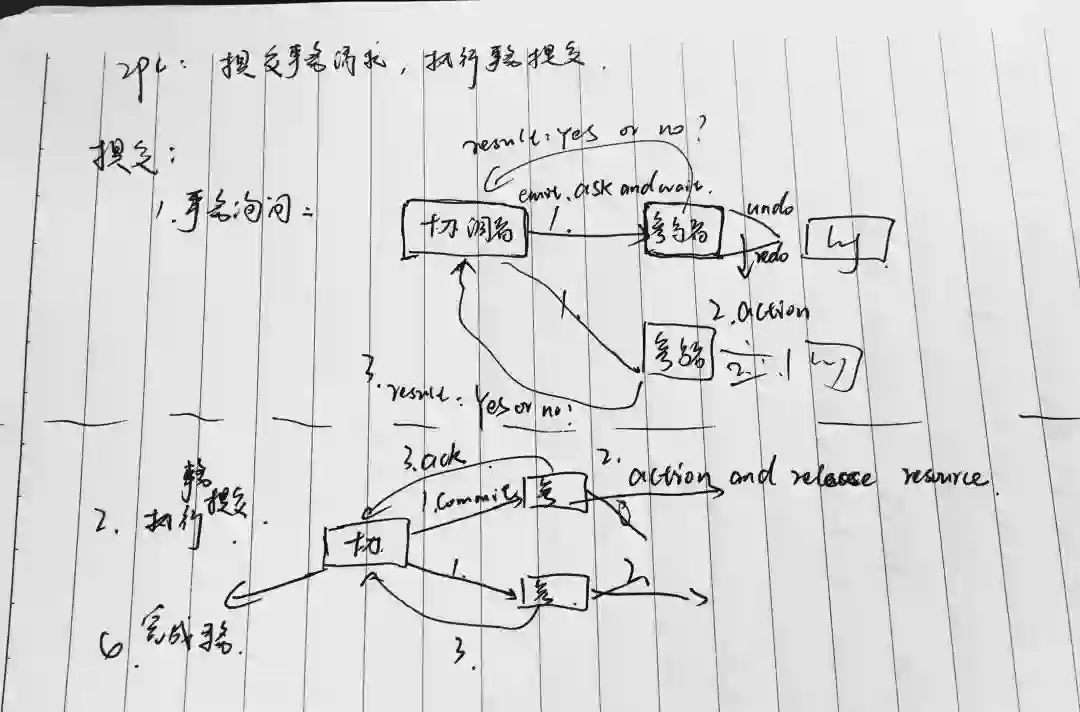 2pc: 提交事务请求, 执行事务提交.
提交:
1. 事务询问:
result: Yes or no?
1. emit. ask and wait.
协调者
参与者
undo
redo
log
1.
2. action
参与者
2.
log
3. result: Yes or no?
3. ack
2. action and release resource.
1. Commit
参
2. 执行事务提交.
协
1.
参
2.
3.
完成事务.